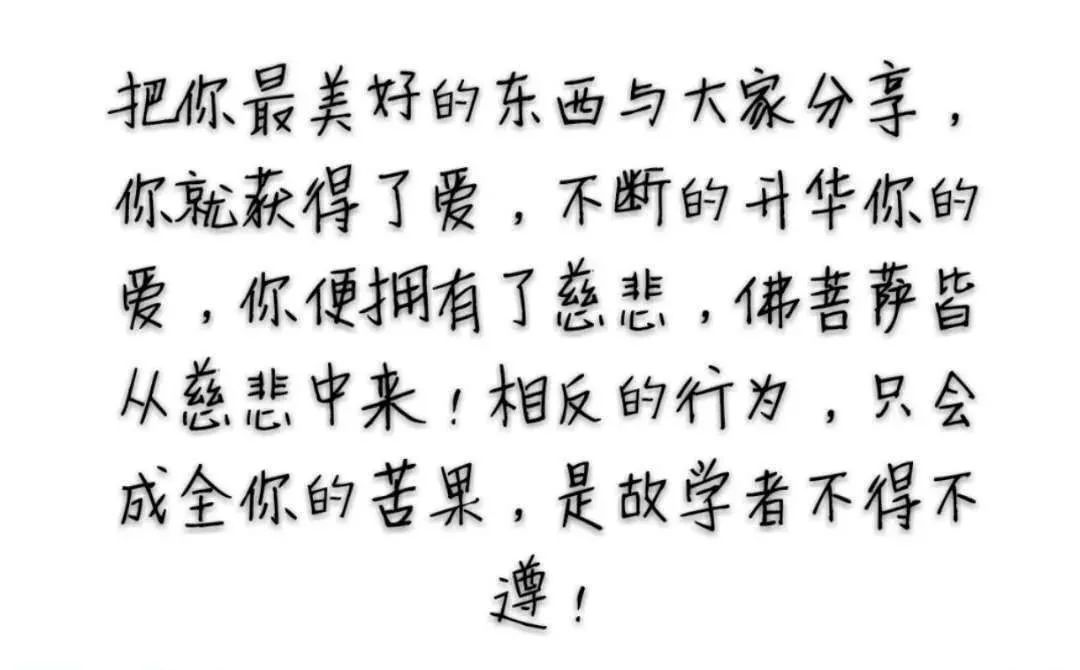 把你最美好的东西与大家分享，
你就获得了爱，不断的升华你的
爱，你便拥有了慈悲，佛菩萨皆
从慈悲中来！相反的行为，只会
成全你的苦果，是故学者不得不
遵！